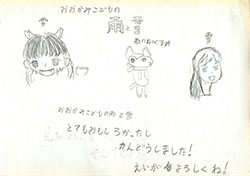 おおかみこどもの
雨と雪
雪
ぬいぐるみ
雪
おおかみこどもの雨と雪
とてもおもしろかったし
かんどうしました!
えいが も よろしくね!